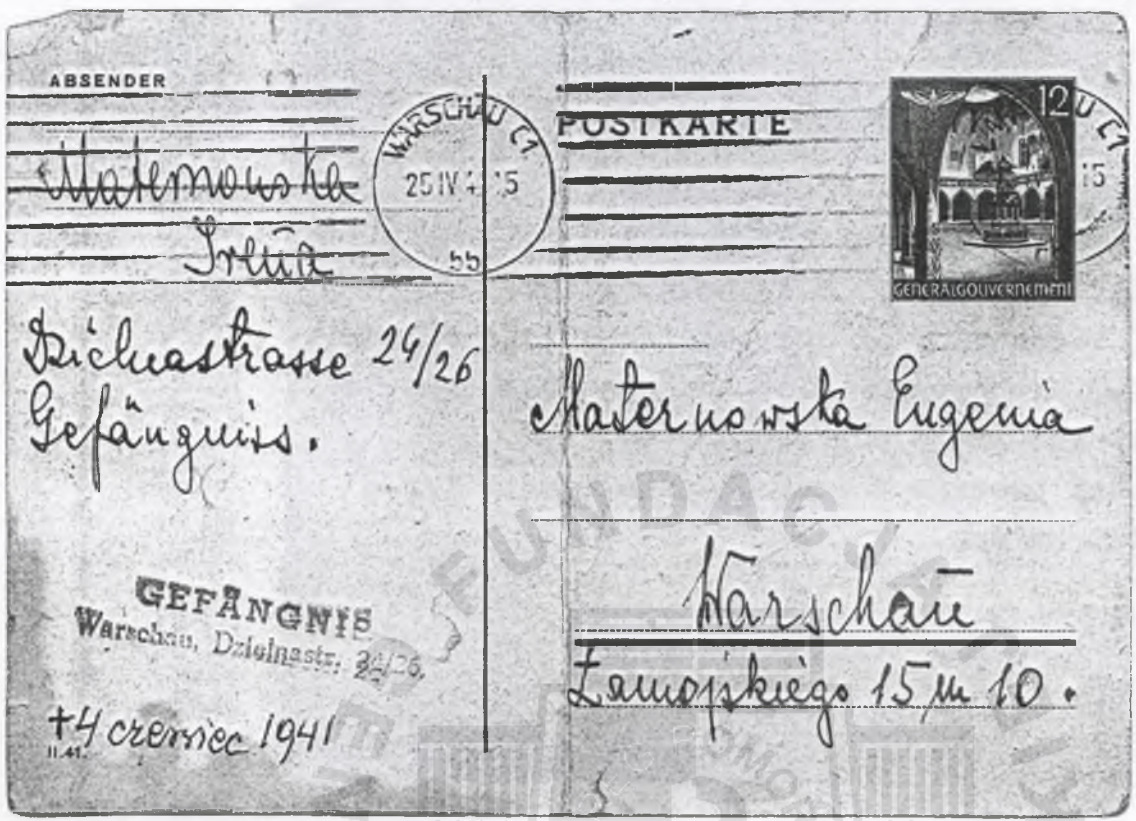 ABSENDER
Maternowska
Irena
Dzielnastrasse 24/26
Gefängniss.
GEFÄNGNIS
Warschau, Dzielnastr. 24/26.
+4 czerwiec 1941
II.41.
WARSCHAU C1
25 IV 4 15
bb
POSTKARTE
12
GENERALGOUVERNEMENT
U C1
15
Maternowska Eugenia
Warschau
Zamojskiego 15 m 10.
FUNDACJA